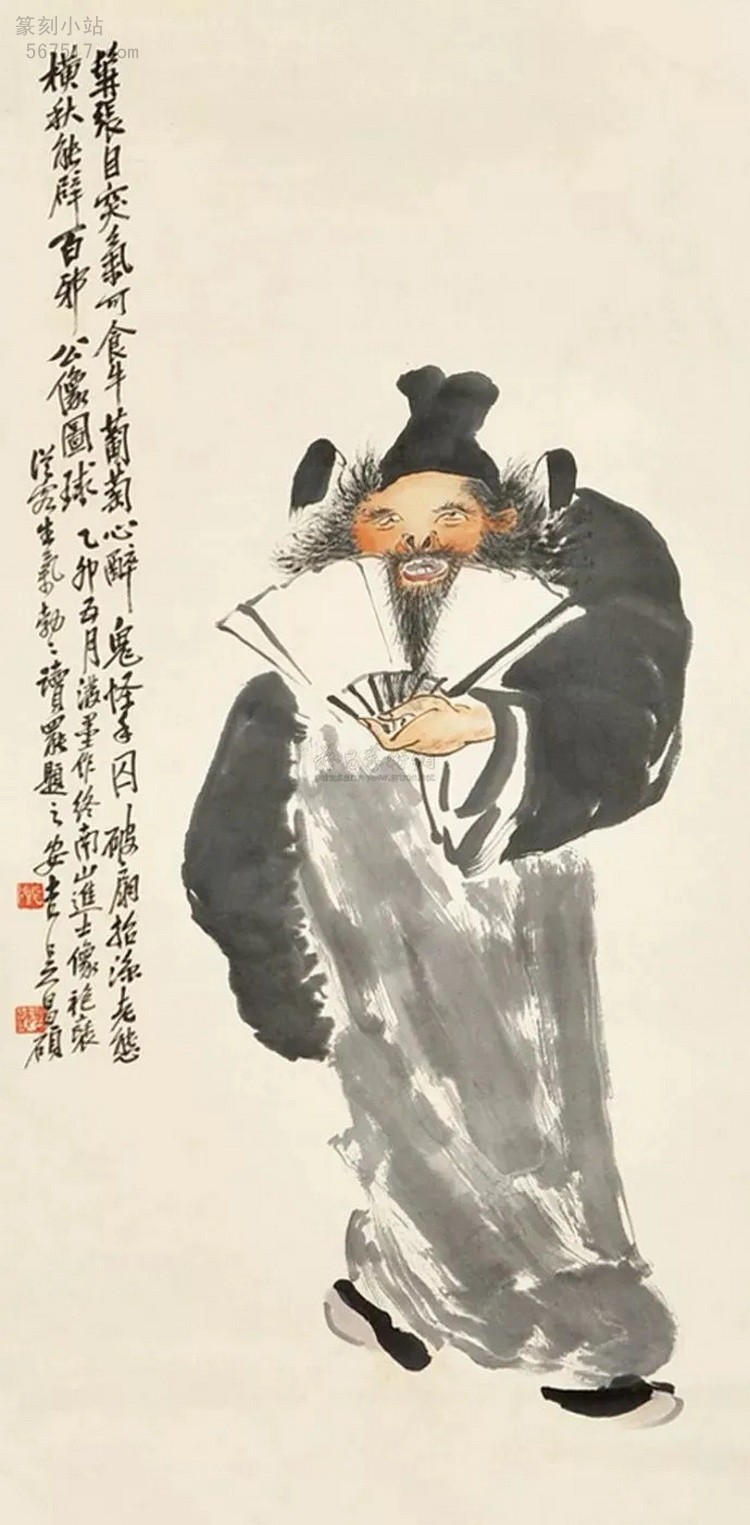 篆刻小站
567517.com
髯張目突氣可食牛葡萄心醉鬼怪手囚破廟拾漆老態
橫秋能辟百邪公像圖球乙卯五月潑墨作終南山進士像袍裝
從容生氣勃〻讀罷題之安吉吳昌碩